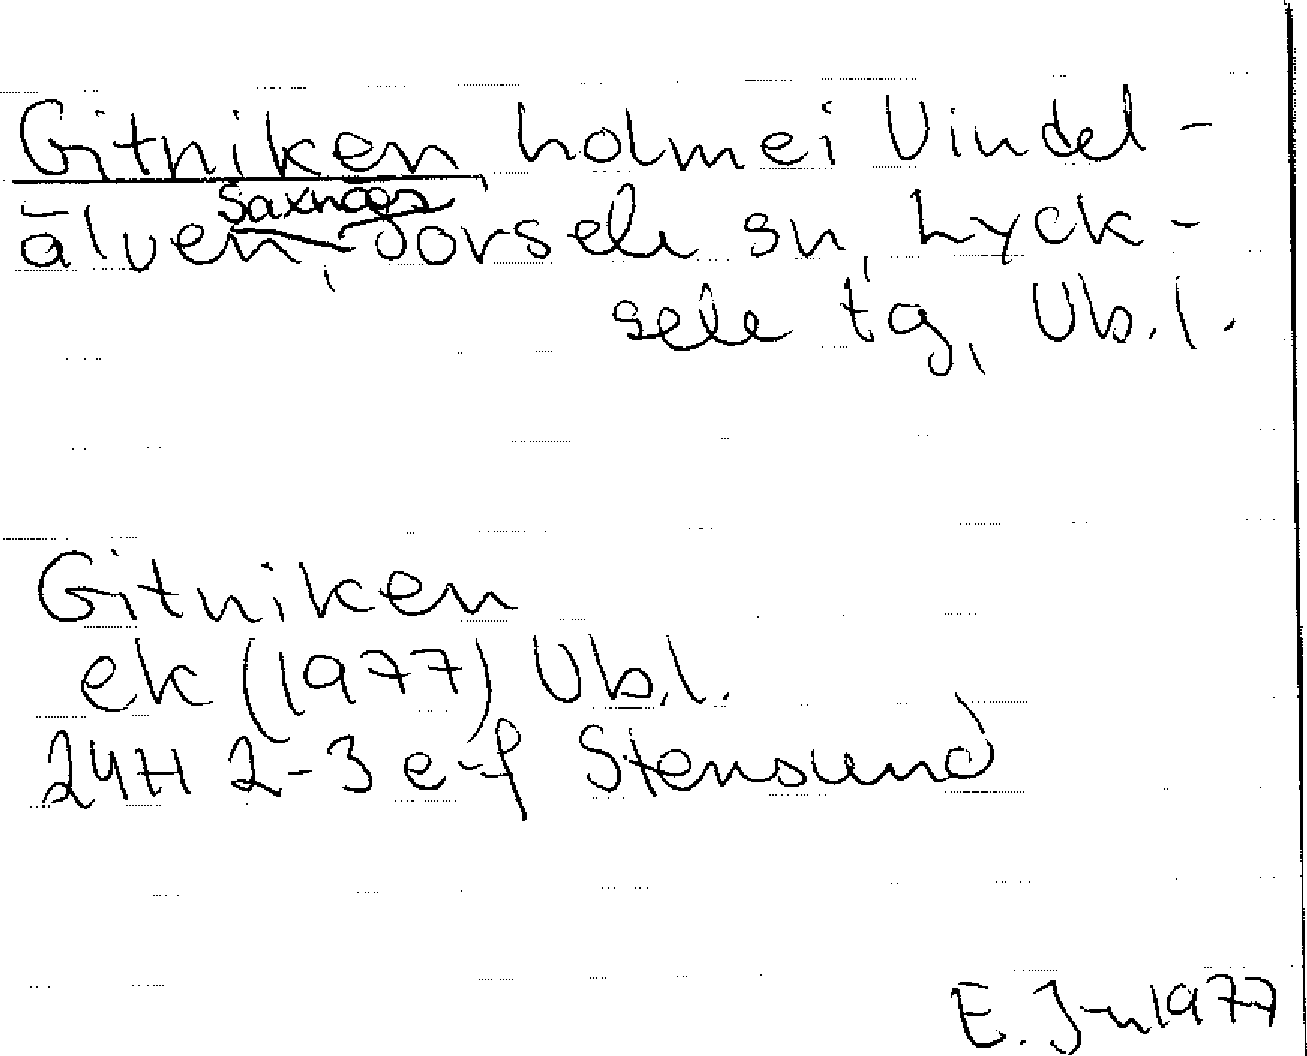 Gitniken holme i Vindel-
Saxnäs
älven, Sorsele sn, Lyck-
sele tg, Vb.l.
Gitniken
ek (1977) Vb.l.
24H 2-3 e-f Stensund
E. J-n 1977